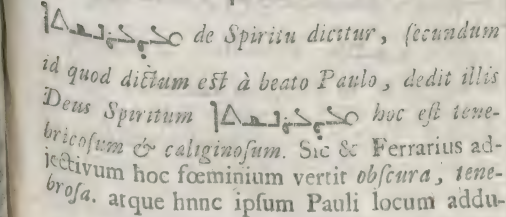 de Spiritu dicitur, secundum
id quod dictum est à beato Paulo, dedit illis
Deus Spiritum hoc est tene-
bricosum & caliginosum. Sic & Ferrarius ad-
jectivum hoc fœminium vertit obscura, tene-
brosa. atque hnnc ipsum Pauli locum addu-